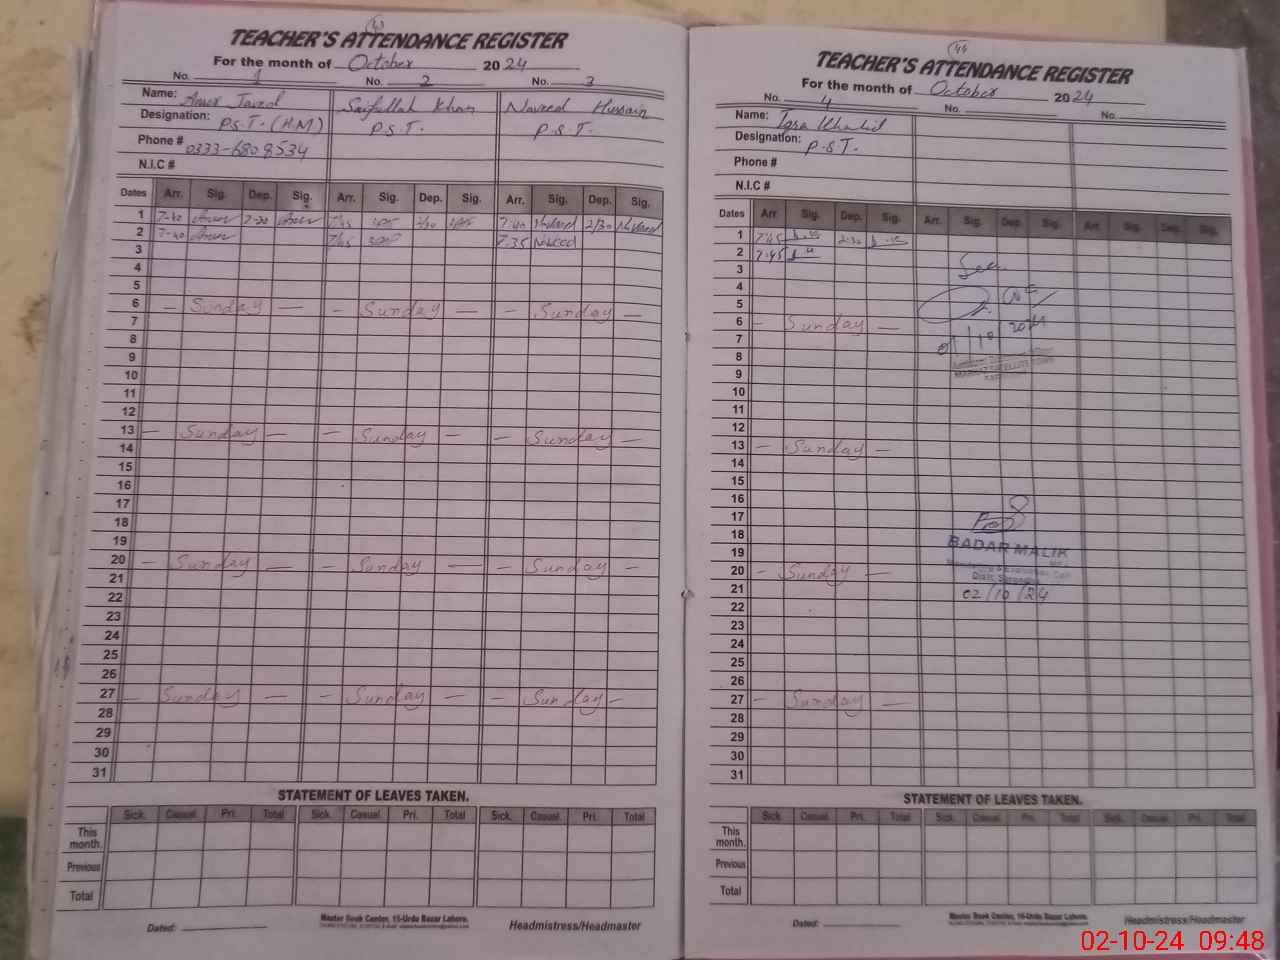 43
TEACHER'S ATTENDANCE REGISTER
For the month of October 2024
No. 1 No. 2 No. 3
Name: Amer Javed Saifullah Khan Naveed Hussain
Designation: P.S.T. (H.M) P.S.T. P.S.T.
Phone # 0333-6808534
N.I.C #
Dates Arr. Sig. Dep. Sig. Arr. Sig. Dep. Sig. Arr. Sig. Dep. Sig.
1 7-40 7-45 2/30 7:40 Naveed 2/30 Naveed
2 7-40 7/45 7.35 Naveed
3
4
5
6 - Sunday - - Sunday - - Sunday -
7
8
9
10
11
12
13 - Sunday - - Sunday - - Sunday -
14
15
16
17
18
19
20 - Sunday - - Sunday - - Sunday -
21
22
23
24
25
26
27 - Sunday - - Sunday - - Sunday -
28
29
30
31
STATEMENT OF LEAVES TAKEN.
Sick. Casual. Pri. Total Sick. Casual. Pri. Total Sick. Casual. Pri. Total
This month.
Previous
Total
Dated:
Master Book Center, 15-Urdu Bazar Lahore.
Headmistress/Headmaster
44
TEACHER'S ATTENDANCE REGISTER
For the month of October 2024
No. 4 No. No.
Name: Iqra Khalid
Designation: P.S.T.
Phone #
N.I.C #
Dates Arr. Sig. Dep. Sig. Arr. Sig. Dep. Sig. Arr. Sig. Dep. Sig.
1 7:45 2:30
2 7:45
3
4
5
6 - Sunday -
7
8
9
10
11
12
13 - Sunday -
14
15
16
17
18
19
20 - Sunday -
21
22
23
24
25
26
27 - Sunday -
28
29
30
31
Seen
01/10/2024
BADAR MALIK
02/10/24
STATEMENT OF LEAVES TAKEN.
Sick. Casual. Pri. Total Sick. Casual. Pri. Total Sick. Casual. Pri. Total
This month.
Previous
Total
Dated:
Master Book Center, 15-Urdu Bazar Lahore.
Headmistress/Headmaster
02-10-24 09:48